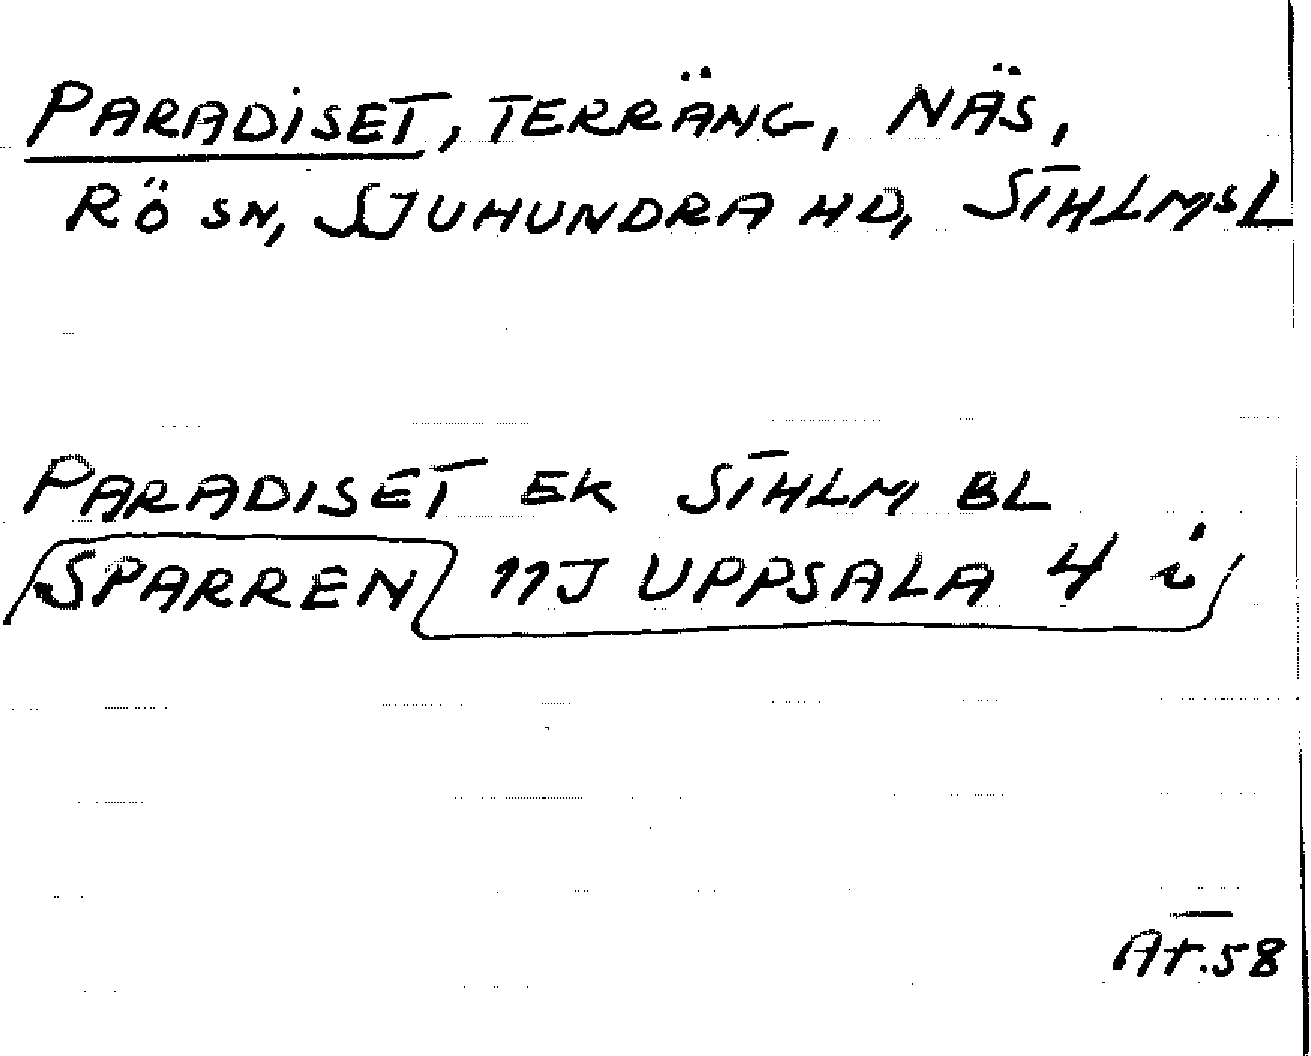 PARADISET, TERRÄNG, NÄS,
RÖ SN, SJUHUNDRA HD, STHLMSL
PARADISET EK STHLM BL
SPARREN 11J UPPSALA 4 i
At.58